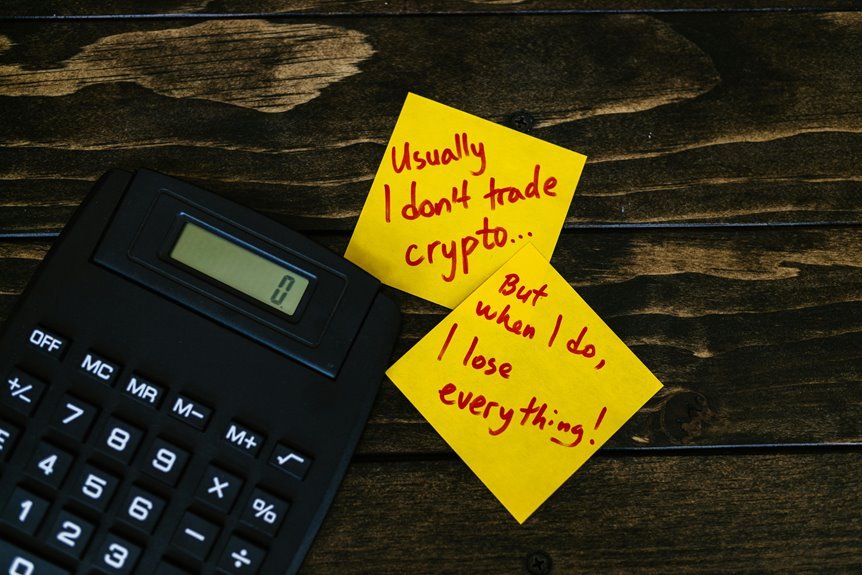 Usually
I don't trade
crypto...
But
when I do,
I lose
everything!
0.
OFF
MC MR M− M+ √
+/− 7 8 9 × %
4 5 6 − ÷
1 2 3
0